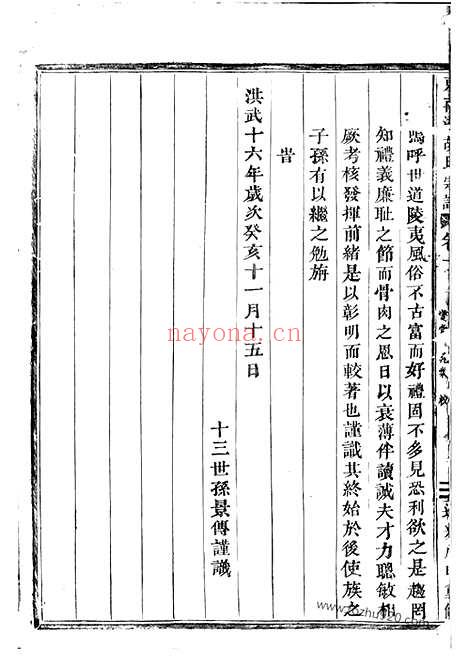 嗚呼世道陵夷風俗不古富而好禮固不多見恐利欲之是趨罔
知禮義廉耻之節而骨肉之恩日以衰薄伴讀誠夫才力聰敏相
厥考核發揮前緒是以彰明而較著也謹識其終始於後使族之
子孫有以繼之勉旃
旹
洪武十六年歲次癸亥十一月十五日
十三世孫景傳謹識
nayona.cn